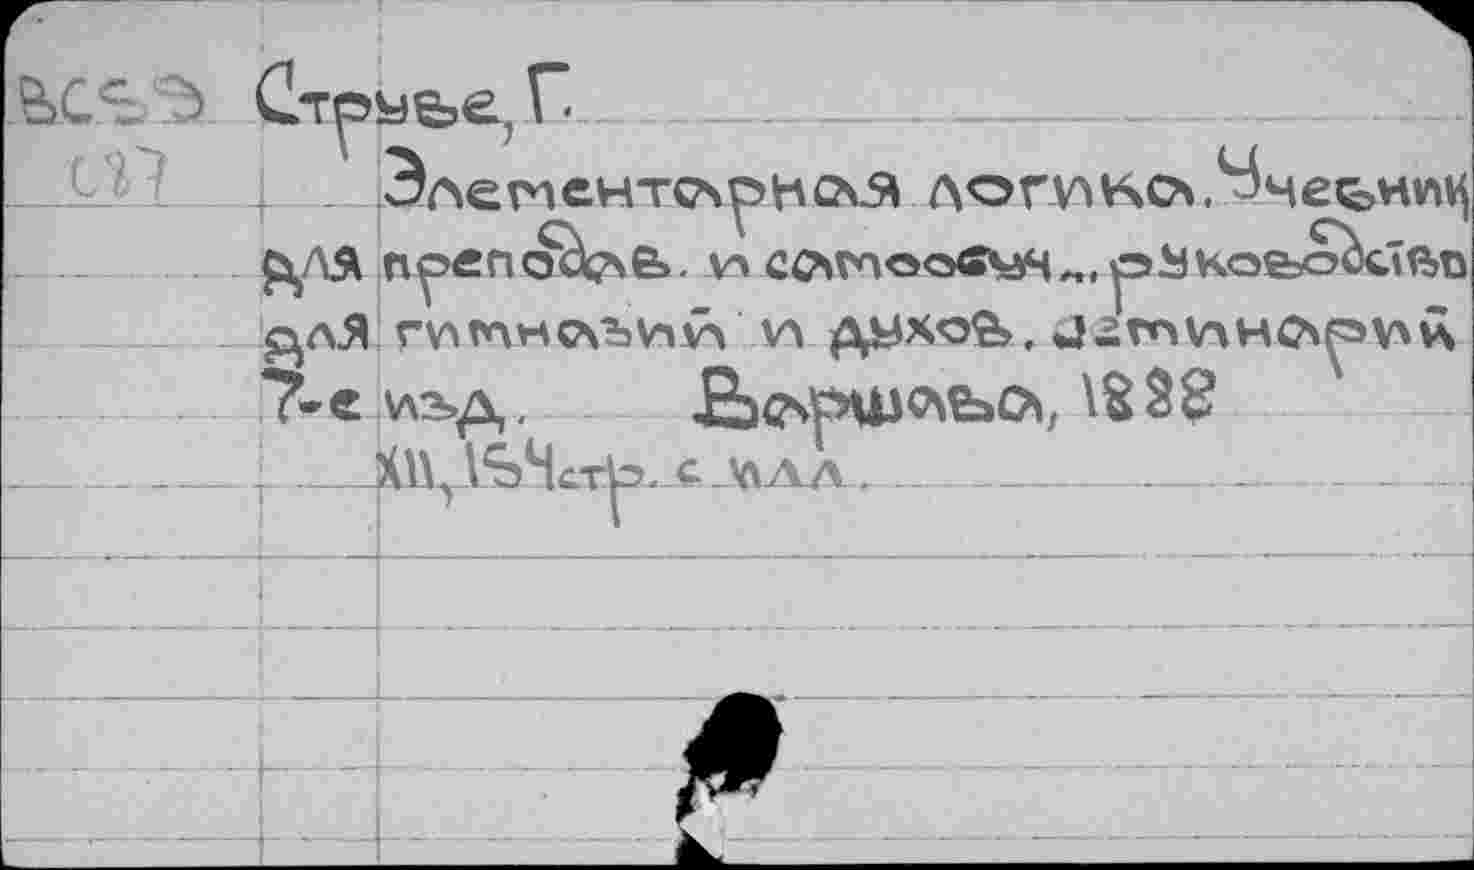 Струве, Г.
Элементарная логика. Учебник
для препод��в. и самообуч... руководство
для гимназий и духов. семинарий
7-е изд. Варшава, 1888
XII, 154 стр. с илл.